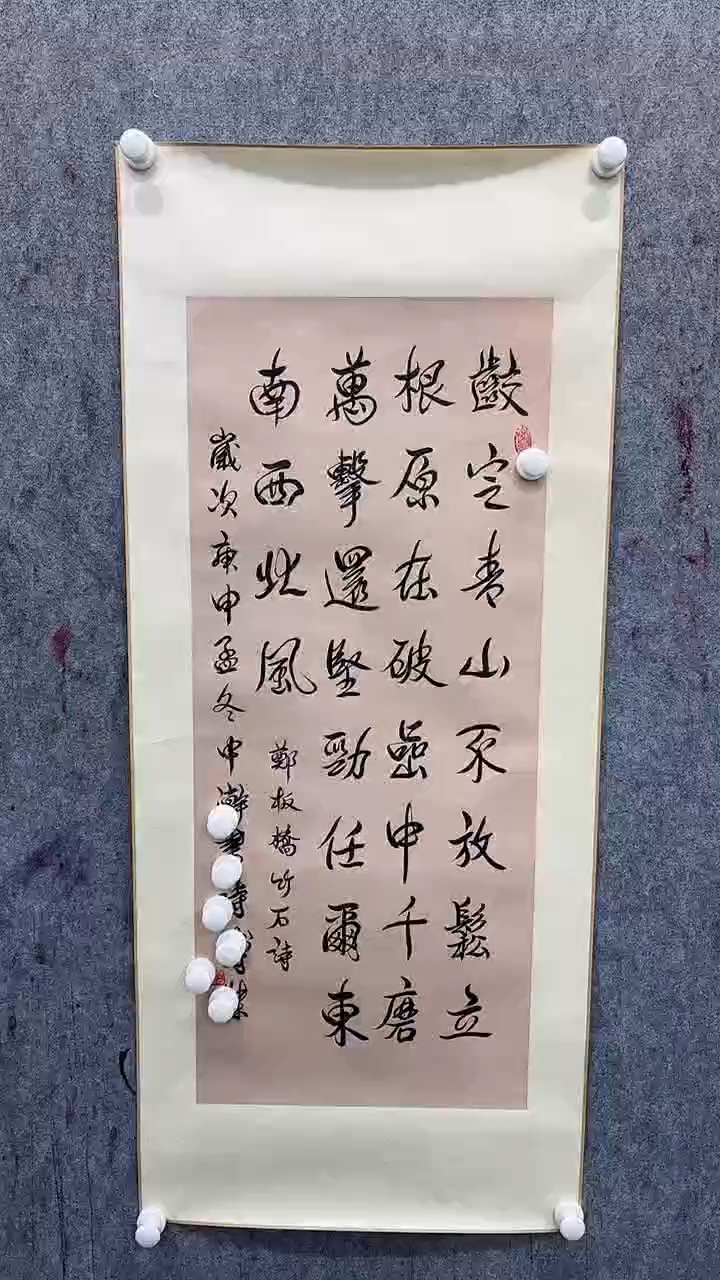 齩定青山不放鬆立
根原在破喦中千磨
萬擊還堅勁任爾東
南西北風
鄭板橋竹石詩
歲次庚申孟冬中瀚